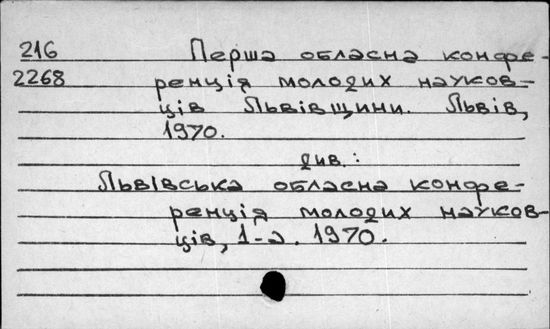 216 Перша обласна конфе-
2268 ренція молодих науков-
ців Львівщини. Львів,
1970.
див.:
Львівська обласна конфе-
ренція молодих науков-
ців, 1-а. 1970.